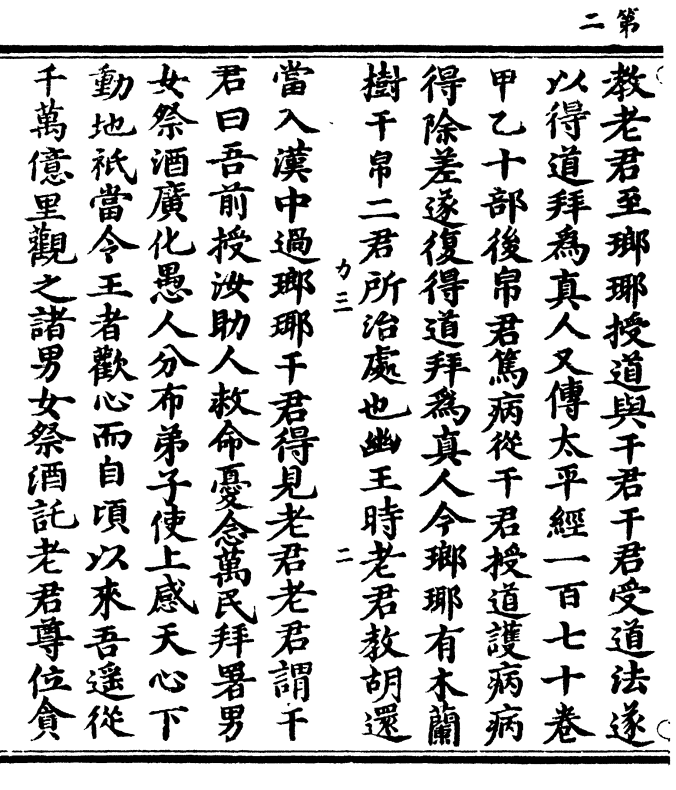 第二
教老君至瑯琊授道與干君干君受道法遂
以得道拜爲真人又傳太平經一百七十卷
甲乙十部後帛君篤病從干君授道護病病
得除差遂復得道拜爲真人今瑯琊有木蘭
樹干帛二君所治處也幽王時老君教胡還
力三
二
當入漢中過瑯琊干君得見老君老君謂干
君曰吾前授汝助人救命憂念萬民拜署男
女祭酒廣化愚人分布弟子使上感天心下
動地祇當令王者歡心而自頃以來吾遥從
千萬億里觀之諸男女祭酒託老君尊位貪